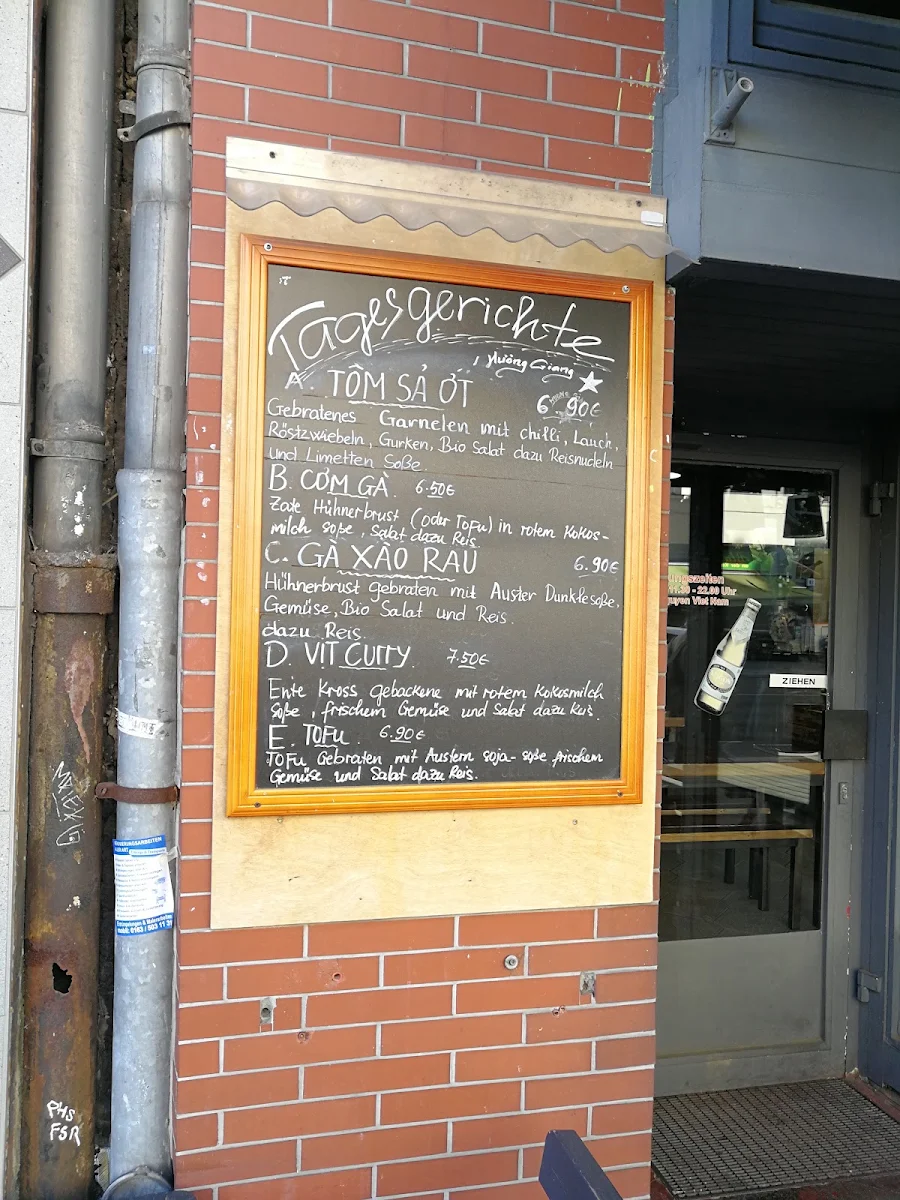 Tagesgerichte
Hường Giang
A. TÔM SẢ ỚT 6.90€
Gebratenes Garnelen mit chilli, Lauch,
Röstzwiebeln, Gurken, Bio Salat dazu Reisnudeln
und Limetten Soße.
B. CƠM GÀ. 6.50€
Zate Hühnerbrust (oder Tofu) in rotem Kokos-
milch soße, Salat dazu Reis
C. GÀ XÀO RAU 6.90€
Hühnerbrust gebraten mit Auster Dunklesoße,
Gemüse, Bio Salat und Reis.
dazu Reis.
D. VIT CURRY. 7.50€
Ente kross gebackene mit rotem Kokosmilch
soße, frischem Gemüse und Salat dazu
E. TOFU. 6.90€
TOFU Gebraten mit Austern soja-soße frischem
Gemüse und Salat dazu Reis.
ungszeiten
11.30 - 22.00 Uhr
uyen Viet Nam
ZIEHEN
mobil: 0163 / 503 11 31
PHS
FSR